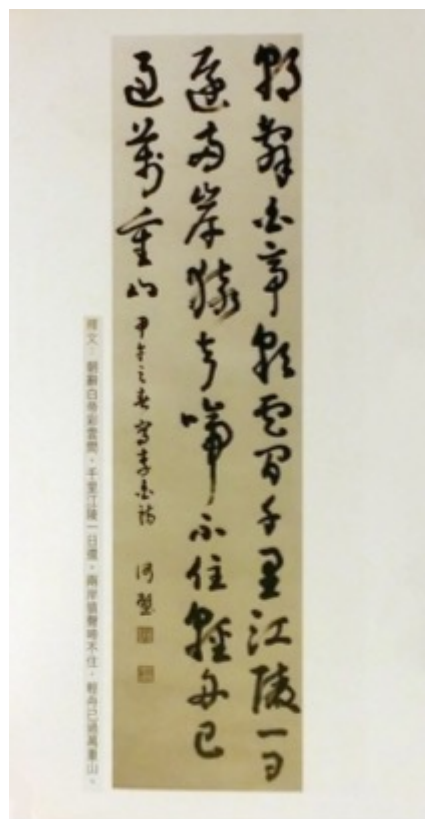 朝辭白帝彩雲間千里江陵一日
還兩岸猿聲啼不住輕舟已
過萬重山
甲午之春寫李白詩
釋文:朝辭白帝彩雲間,千里江陵一日還,兩岸猿聲啼不住,輕舟已過萬重山。